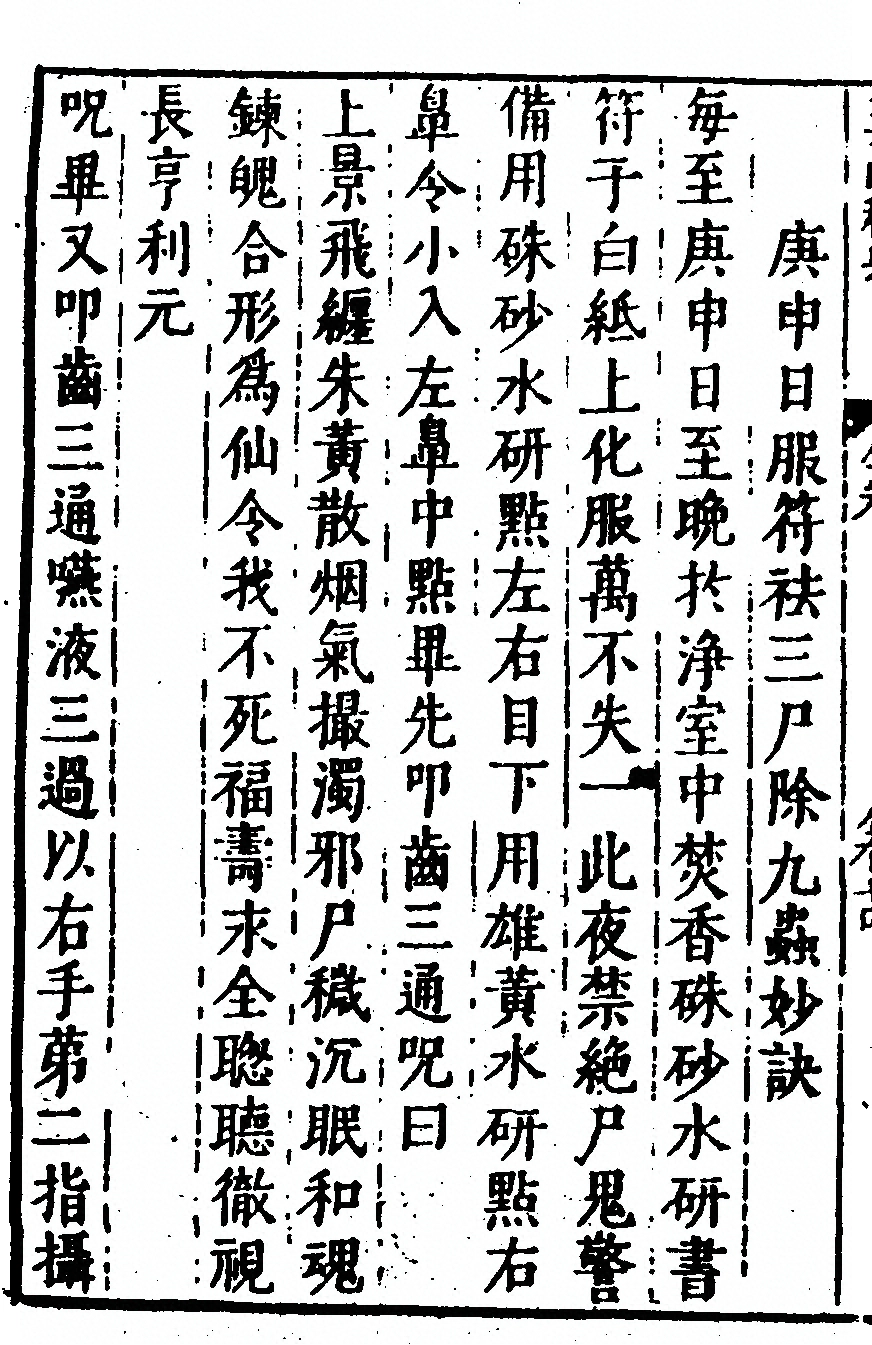 庚申日服符祛三尸除九蟲妙訣
每至庚申日至晚於淨室中焚香硃砂水研書
符于白紙上化服萬不失一此夜禁絶尸鬼警
備用硃砂水研點左右目下用雄黃水研點右
鼻令小入左鼻中點畢先叩齒三通呪曰
上景飛纏朱黃散烟氣撮濁邪尸穢沉眠和魂
鍊魄合形爲仙令我不死福壽求全聦聽徹視
長亨利元
呪畢又叩齒三通嚥液三過以右手苐二指攝